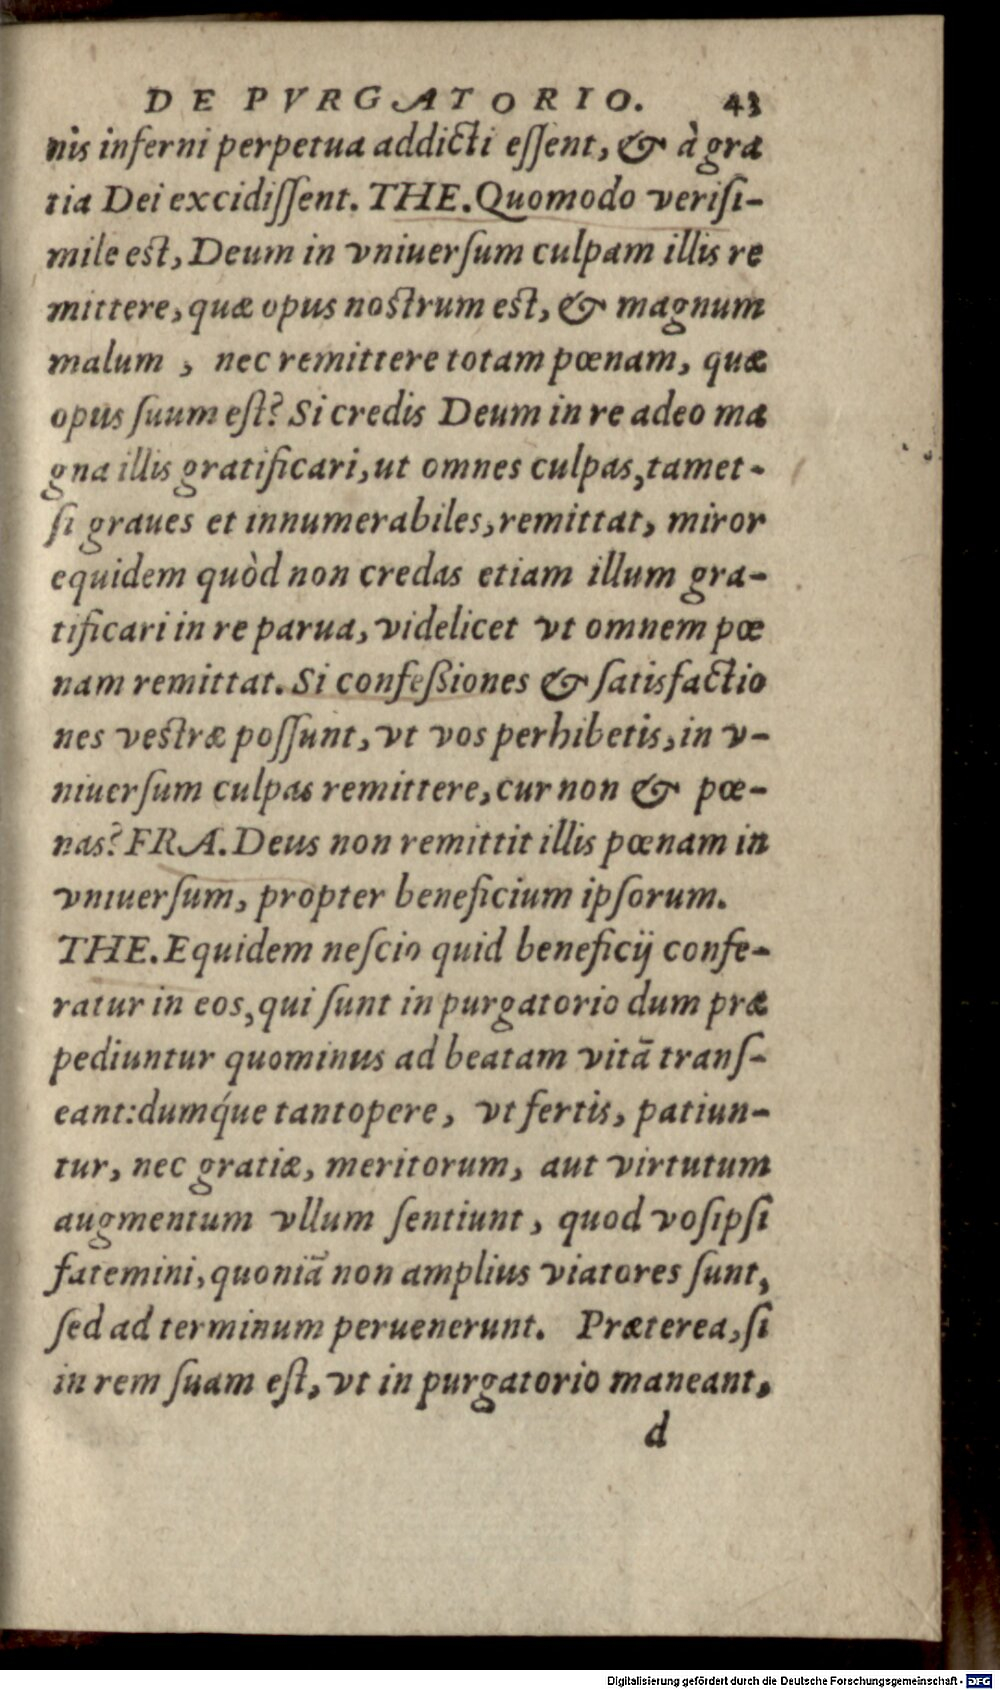 DE PVRGATORIO. 43
nis inferni perpetua addicti eſſent, & à gra
tia Dei excidiſſent. THE. Quomodo veriſi-
mile est, Deum in vniuerſum culpam illis re
mittere, quæ opus nostrum est, & magnum
malum , nec remittere totam pœnam, quæ
opus ſuum eſt? Si credis Deum in re adeo ma
gna illis gratificari, ut omnes culpas, tamet-
ſi graues et innumerabiles, remittat, miror
equidem quòd non credas etiam illum gra-
tificari in re parua, videlicet vt omnem pœ
nam remittat. Si confeßiones & ſatisfactio
nes vestræ poſſunt, vt vos perhibetis, in v-
niuerſum culpas remittere, cur non & pœ-
nas? FRA. Deus non remittit illis pœnam in
vniuerſum, propter beneficium ipſorum.
THE. Equidem neſcio quid beneficij confe-
ratur in eos, qui ſunt in purgatorio dum præ
pediuntur quominus ad beatam vitã tranſ-
eant: dumq́ue tantopere, vt fertis, patiun-
tur, nec gratiæ, meritorum, aut virtutum
augmentum vllum ſentiunt, quod voſipſi
fatemini, quoniã non amplius viatores ſunt,
ſed ad terminum peruenerunt. Præterea, ſi
in rem ſuam eſt, vt in purgatorio maneant,
d
Digitalisierung gefördert durch die Deutsche Forschungsgemeinschaft - DFG